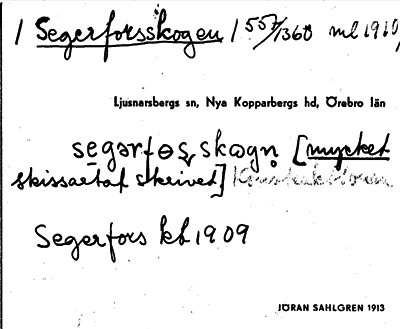 / Segerforsskogen / 557/1360 ml 1910
Ljusnarsbergs sn, Nya Kopparbergs hd, Örebro län
[mycket
skrivet]
Segerfors kb 1909
JÖRAN SAHLGREN 1913